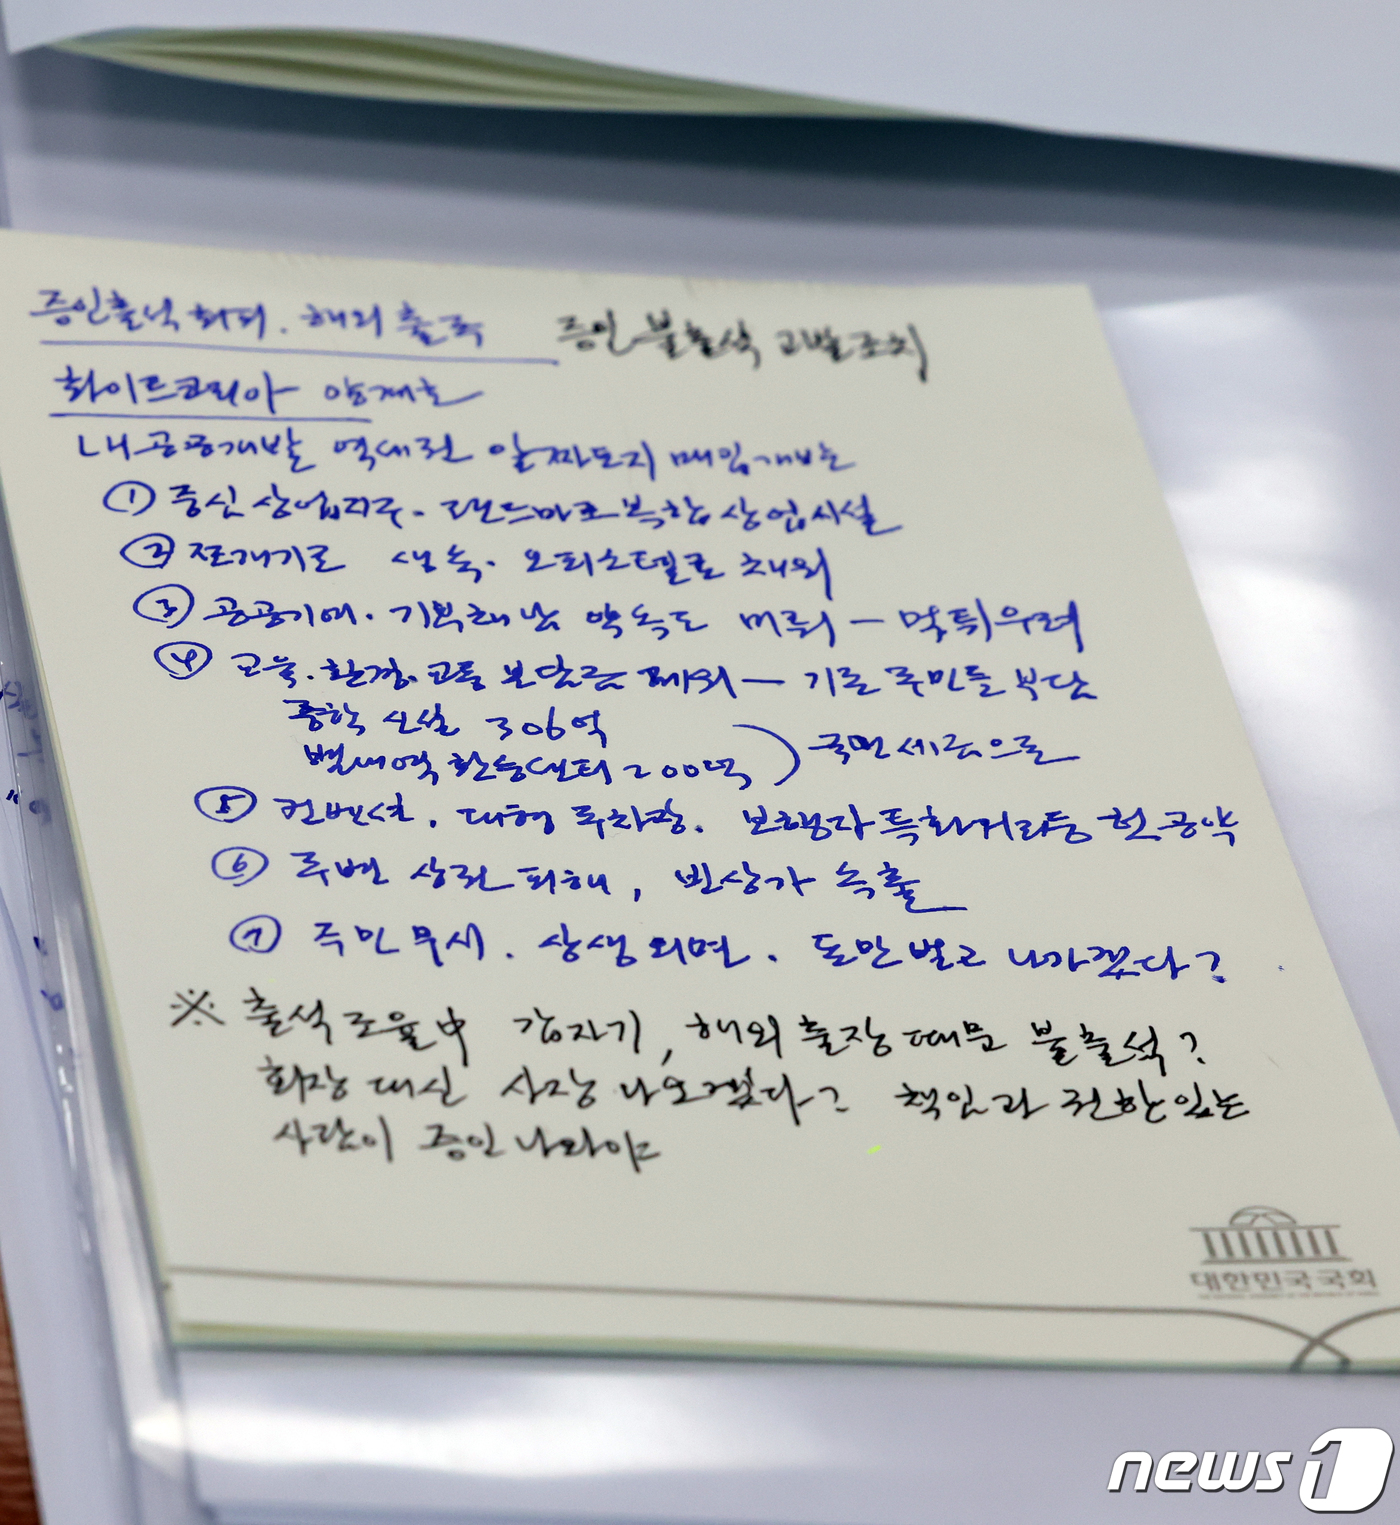 증인출석 회피. 해외출국 증인 불출석 고발조치
화이트코리아 양재호
내 공공개발 역대권 알짜토지 매입개발
① 중심상업지구. 랜드마크 복합상업시설
② 쪼개기로 생숙. 오피스텔로 채워
③ 공공기여. 기부채납 약속도 미뤄 - 먹튀우려
④ 교육. 환경. 교통 부담금 제외 - 기존 주민들 부담
중학 신설 306억
별내역 환승센터 200억 ) 국민세금으로
⑤ 컨벤션. 대형 주차장. 보행자특화거리등 헛공약
⑥ 주변 상권 피해, 빈상가 속출
⑦ 주민 무시. 상생외면. 돈만 벌고 나가겠다?
※ 출석 조율中 갑자기, 해외출장 때문 불출석?
회장 대신 사장 나오겠다? 책임과 권한있는
사람이 증인 나와야
대한민국국회
news1